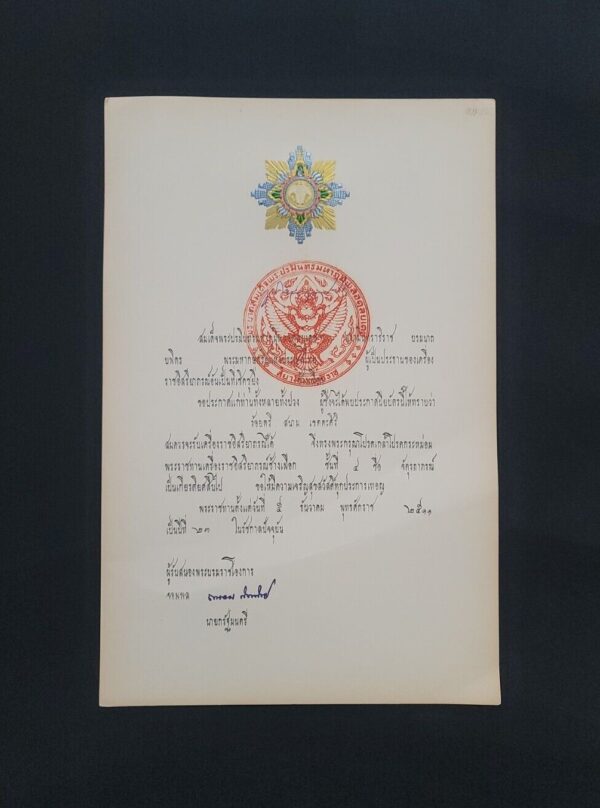 สมเด็จพระปรมินทรมหาภูมิพลอดุลยเดช สยามินทราธิราช บรมนาถ
บพิตร พระมหากษัตริย์แห่งประเทศไทย ผู้เป็นประธานของเครื่อง
ราชอิสริยาภรณ์อันเป็นที่เชิดชูยิ่ง
ขอประกาศแก่ท่านทั้งหลายทั้งปวง ผู้ซึ่งจะได้พบประกาศนียบัตรนี้ให้ทราบว่า
ร้อยตรี สนาม เขตตะคีรี
สมควรจะรับเครื่องราชอิสริยาภรณ์ได้ จึงทรงพระกรุณาโปรดเกล้าโปรดกระหม่อม
พระราชทานเครื่องราชอิสริยาภรณ์ช้างเผือก ชั้นที่ ๔ ชื่อ จัตุรถาภรณ์
เป็นเกียรติยศสืบไป ขอให้มีความเจริญสุขสวัสดิ์ทุกประการเทอญ
พระราชทานตั้งแต่วันที่ ๕ ธันวาคม พุทธศักราช ๒๕๑๑
เป็นปีที่ ๒๓ ในรัชกาลปัจจุบัน
ผู้รับสนองพระบรมราชโองการ
จอมพล
นายกรัฐมนตรี